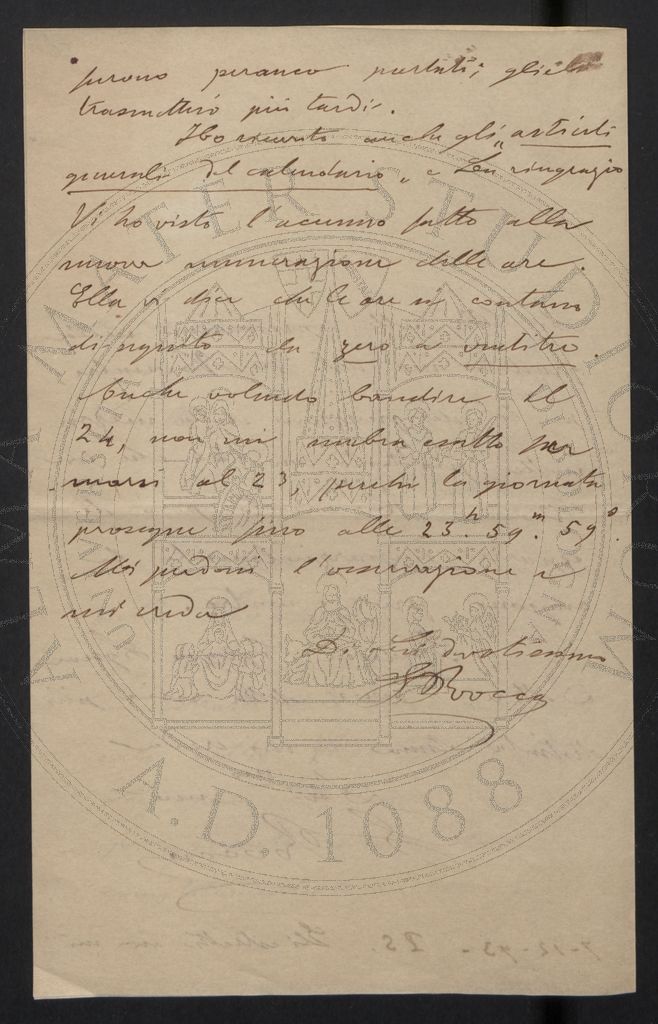 furono peranco portati; glieli
trasmetterò più tardi.
Ho ricevuto anche gli „ articoli
generali del calendario „ e La ringrazio
Vi ho visto l'accenno fatto alla
nuova numerazione delle ore.
Ella vi dice che le ore si contano
di seguito da zero a ventitre.
Anche volendo bandire il
24, non mi sembra esatto fer
marsi al 23, perchè la giornata
prosegue fino alle 23.h 59.m 59s.
Mi perdoni l'osservazione e
mi creda
Di Lei devotissimo
Rocca
ALMA MATER STUDIORUM
A.D. 1088
7-12-93 - P.S.